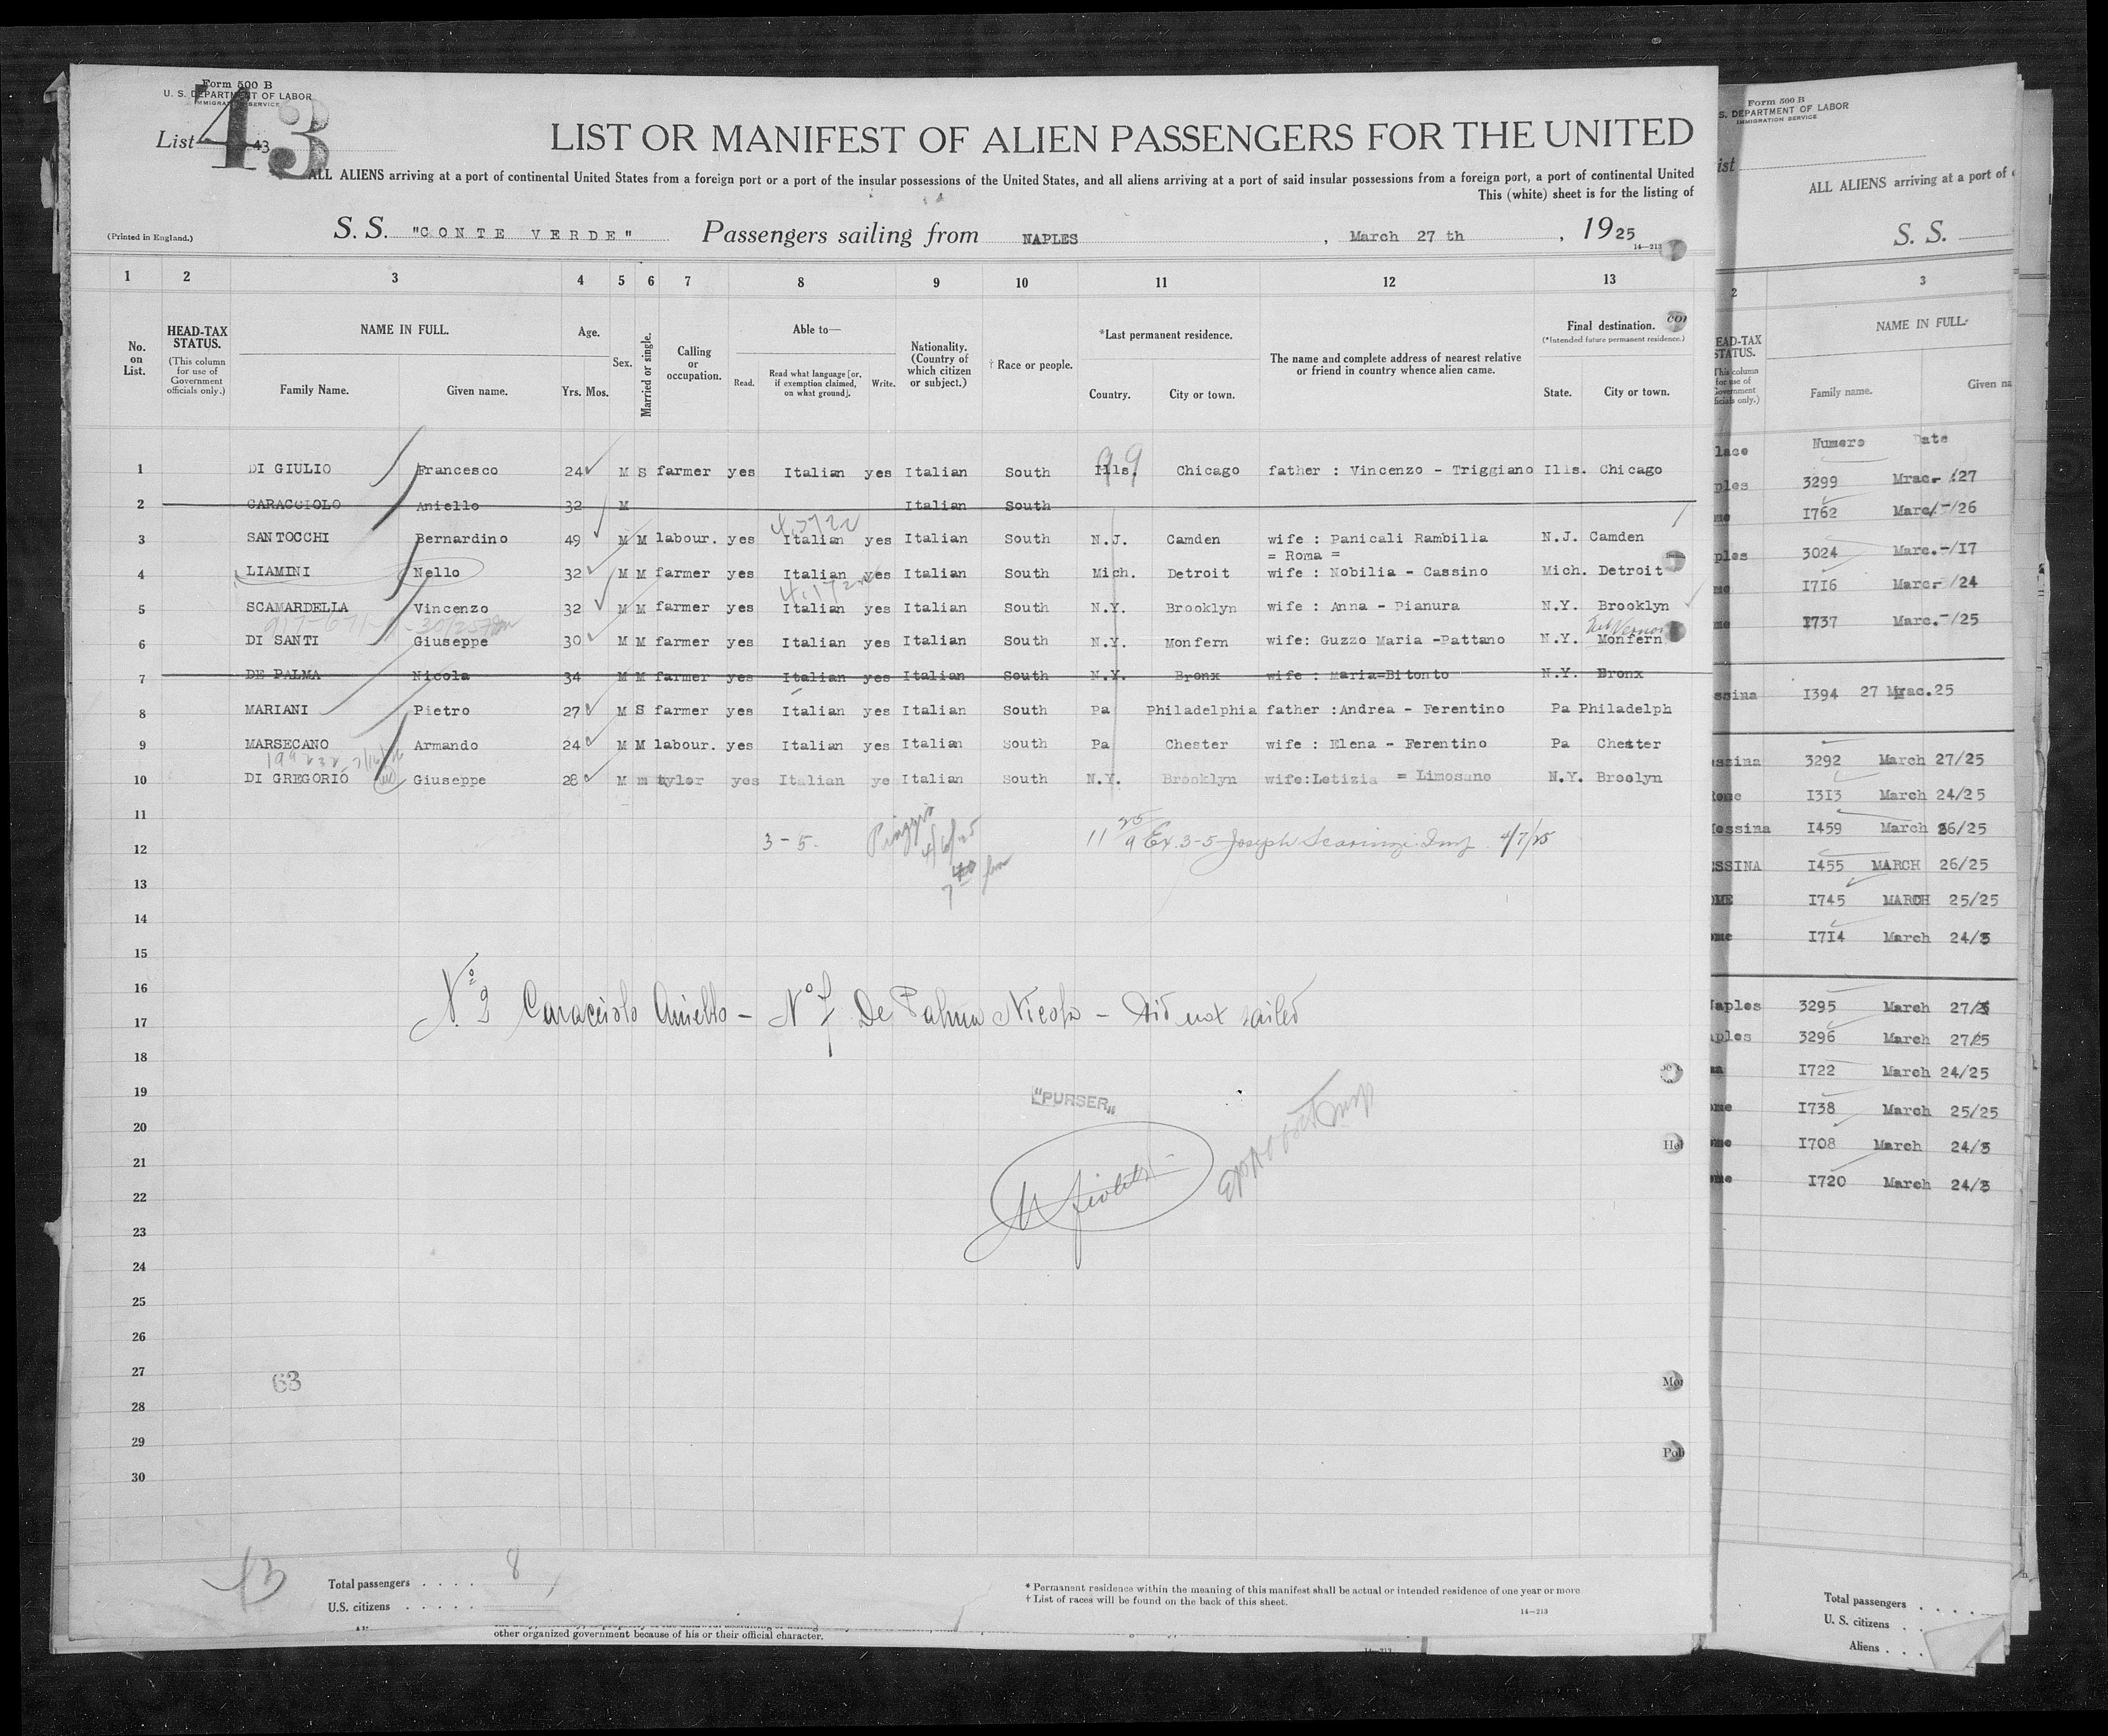 Form 500 B
U. S. DEPARTMENT OF LABOR
IMMIGRATION SERVICE
List 43
43
LIST OR MANIFEST OF ALIEN PASSENGERS FOR THE UNITED
ALL ALIENS arriving at a port of continental United States from a foreign port or a port of the insular possessions of the United States, and all aliens arriving at a port of said insular possessions from a foreign port, a port of continental United
This (white) sheet is for the listing of
(Printed in England.)
S. S. "CONTE VERDE" Passengers sailing from NAPLES, March 27 th, 1925
14—213
1 2 3 4 5 6 7 8 9 10 11 12 13
No. on List.
HEAD-TAX STATUS.
(This column for use of Government officials only.)
NAME IN FULL.
Family Name. Given name.
Age.
Yrs. Mos.
Sex.
Married or single.
Calling or occupation.
Able to—
Read. Read what language [or, if exemption claimed, on what ground]. Write.
Nationality. (Country of which citizen or subject.)
† Race or people.
*Last permanent residence.
Country. City or town.
The name and complete address of nearest relative or friend in country whence alien came.
Final destination.
(*Intended future permanent residence.)
State. City or town.
99
1 DI GIULIO Francesco 24 M S farmer yes Italian yes Italian South Ills. Chicago father : Vincenzo - Triggiano Ills. Chicago
2 CARACCIOLO Aniello 32 M Italian South
3 SANTOCCHI Bernardino 49 M M labour. yes Italian yes Italian South N.J. Camden wife : Panicali Rambilla N.J. Camden
= Roma =
4 LIAMINI Nello 32 M M farmer yes Italian yes Italian South Mich. Detroit wife : Nobilia - Cassino Mich. Detroit
5 SCAMARDELLA Vincenzo 32 M M farmer yes Italian yes Italian South N.Y. Brooklyn wife : Anna - Pianura N.Y. Brooklyn
6 DI SANTI Giuseppe 30 M M farmer yes Italian yes Italian South N.Y. Monfern wife: Guzzo Maria -Pattano N.Y. Monfern
7 DE PALMA Nicola 34 M M farmer yes Italian yes Italian South N.Y. Bronx wife : Maria=Bitonto N.Y. Bronx
8 MARIANI Pietro 27 M S farmer yes Italian yes Italian South Pa Philadelphia father :Andrea - Ferentino Pa Philadelph
9 MARSECANO Armando 24 M M labour. yes Italian yes Italian South Pa Chester wife : Elena - Ferentino Pa Chester
10 DI GREGORIO Giuseppe 28 M m tylor yes Italian ye Italian South N.Y. Brooklyn wife:Letizia = Limosano N.Y. Broolyn
11
12 3-5. 4/6/25 Ex. 3-5 Joseph Insp. 4/7/25
13
14
15
16
N° 2 Caracciolo Aniello - N° 7 De Palma Nicola - Did not sailed
17
18
19
"PURSER"
20
21
22
23
24
25
26
27
63
28
29
30
43
Total passengers . . . . 8
U.S. citizens . . . . .
* Permanent residence within the meaning of this manifest shall be actual or intended residence of one year or more
† List of races will be found on the back of this sheet.
14—213
other organized government because of his or their official character.
Form 500 B
S. DEPARTMENT OF LABOR
IMMIGRATION SERVICE
ist
ALL ALIENS arriving at a port of
S. S.
2 3
EAD-TAX STATUS.
NAME IN FULL.
Family name. Given na
lace Numero Date
ples 3299 Mrac- /27
me 1762 Marc/-/26
ples 3024 Marc.-/17
me 1716 Marc- /24
me 1737 Marc.-/25
ssina 1394 27 Mrac.25
ssina 3292 March 27/25
Rome 1313 March 24/25
Messina 1459 March 26/25
ESSINA 1455 MARCH 26/25
OME 1745 MARCH 25/25
ome 1714 March 24/5
Naples 3295 March 27/5
aples 3296 March 27/25
ma 1722 March 24/25
ome 1738 March 25/25
ome 1708 March 24/5
ome 1720 March 24/5
Total passengers . . . .
U. S. citizens . .
Aliens . . .